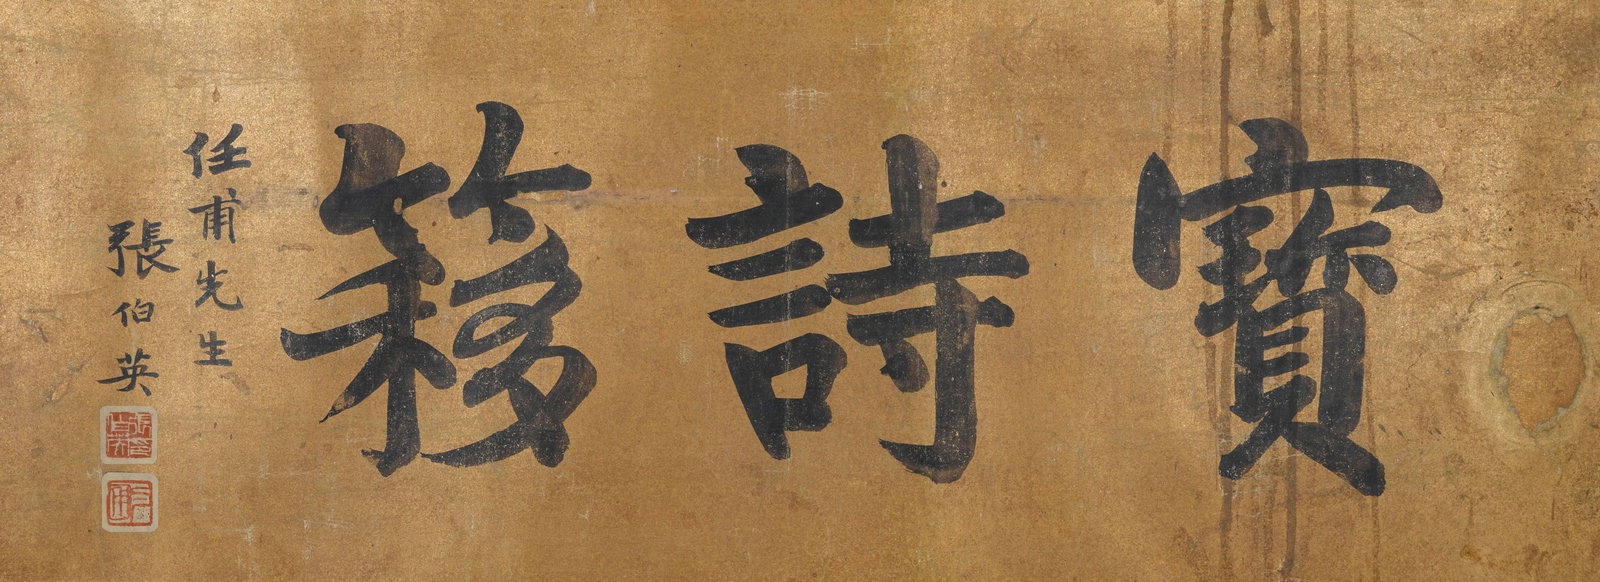 寶詩簃
任甫先生
張伯英